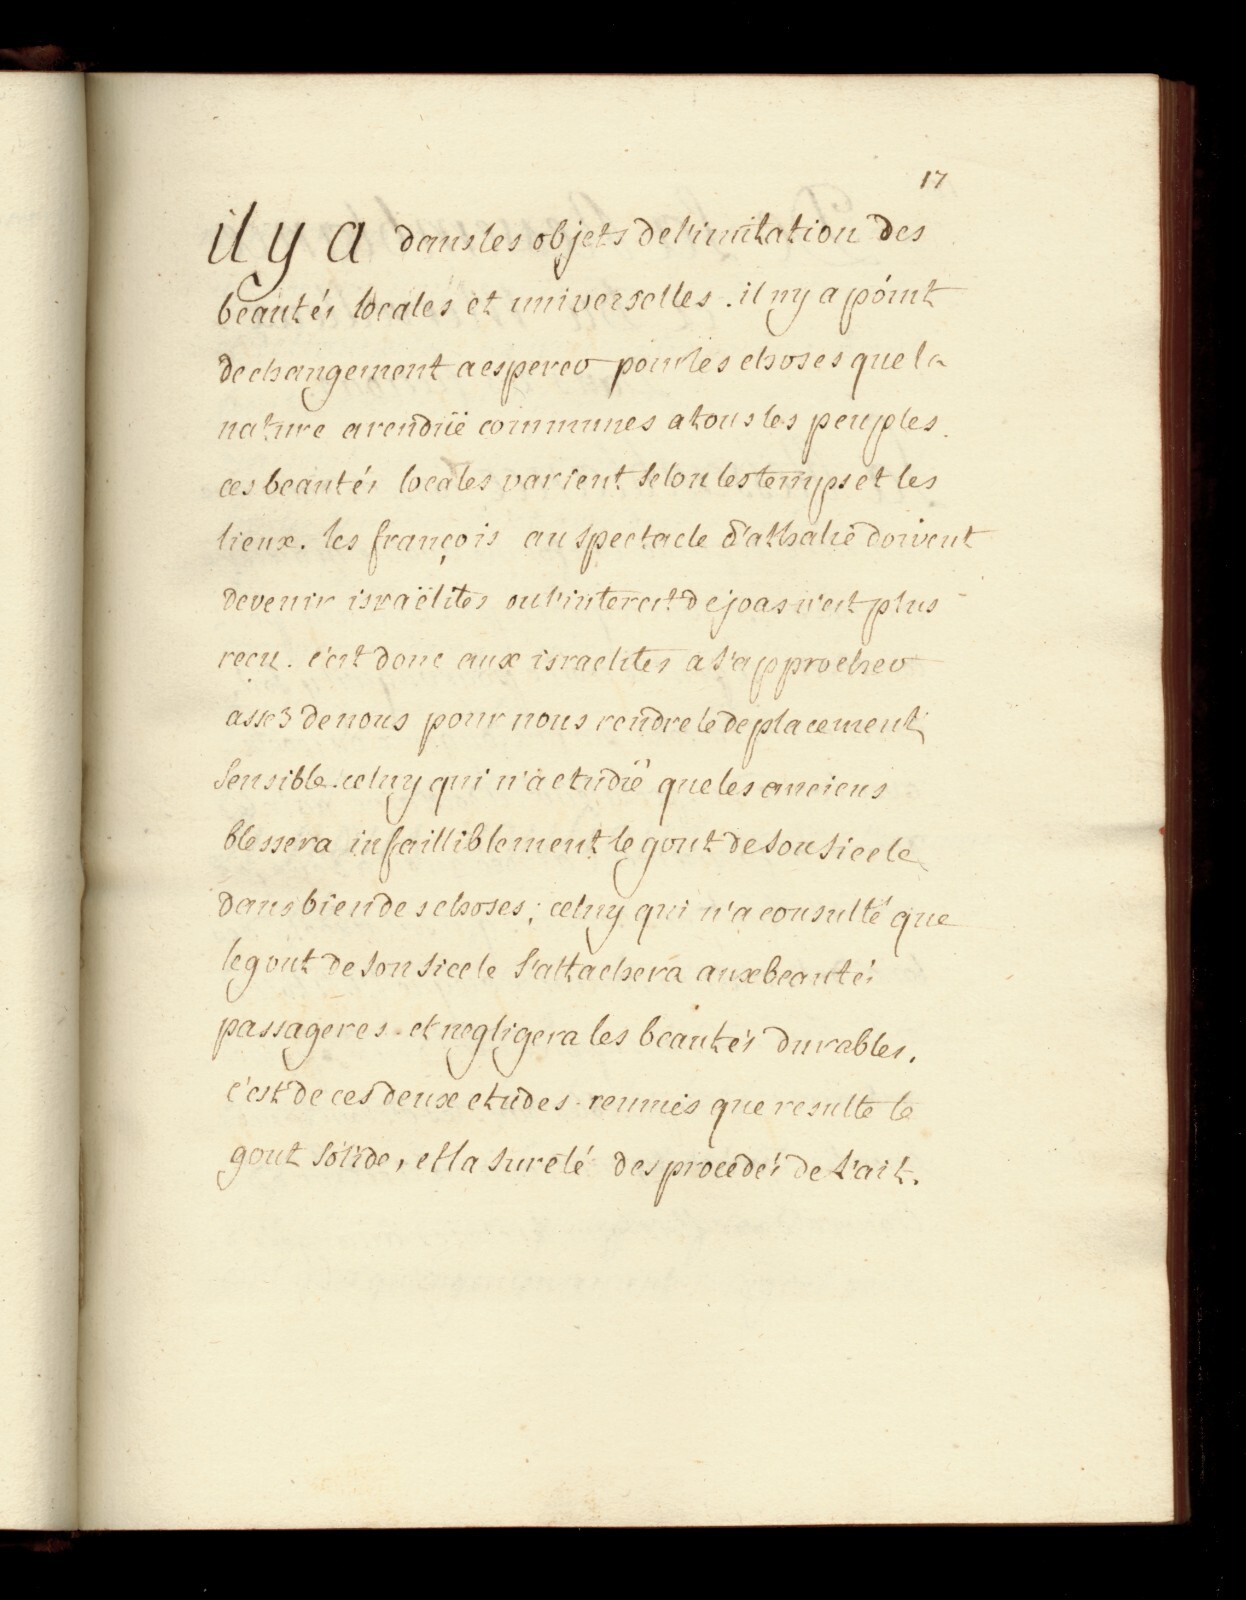 17
il y a dans les objets de l'imitation des
beautés locales et universelles . il ny a point
de changement a esperer pour les choses que la
nature a rendüe communes a tous les peuples.
ces beautés locales varient selon les temps et les
lieux. les françois au spectacle d'athalie doivent
devenir israëlites ou l'interest de joas n'est plus
reçu. c'est donc aux israelites a s'approcher
assez de nous pour nous rendre le deplacement
sensible. celuy qui n'a etudié que les anciens
blessera infailliblement le gout de son siecle
dans bien des choses; celuy qui n'a consulté que
le gout de son siecle s'attachera aux beautés
passageres. et negligera les beautés durables.
c'est de ces deux etudes reunies que resulte le
gout solide, et la sureté des procedés de l'art.